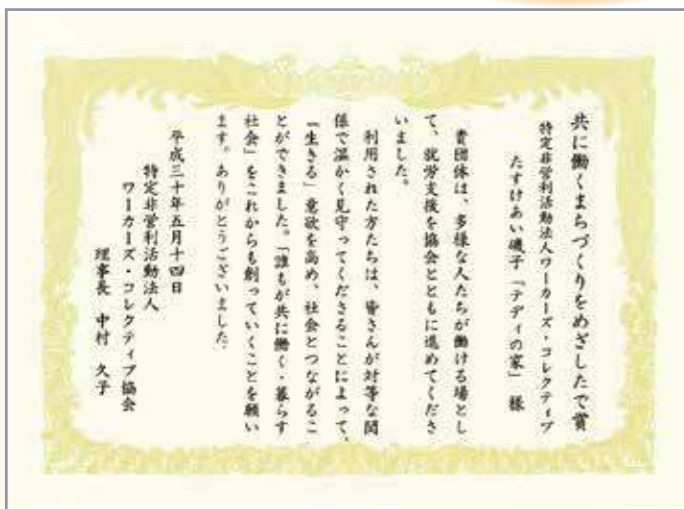 共に働くまちづくりをめざしたで賞
特定非営利活動法人ワーカーズ・コレクティブ
たすけあい磯子「テディの家」 様
貴団体は、多様な人たちが働ける場とし
て、就労支援を協会とともに進めてくださ
いました。
利用された方たちは、皆さんが対等な関
係で温かく見守ってくださることによって、
「生きる」意欲を高め、社会とつながるこ
とができました。「誰もが共に働く・暮らす
社会」をこれからも創っていくことを願い
ます。ありがとうございました。
平成三十年五月十四日
特定非営利活動法人
ワーカーズ・コレクティブ協会
理事長 中村 久子